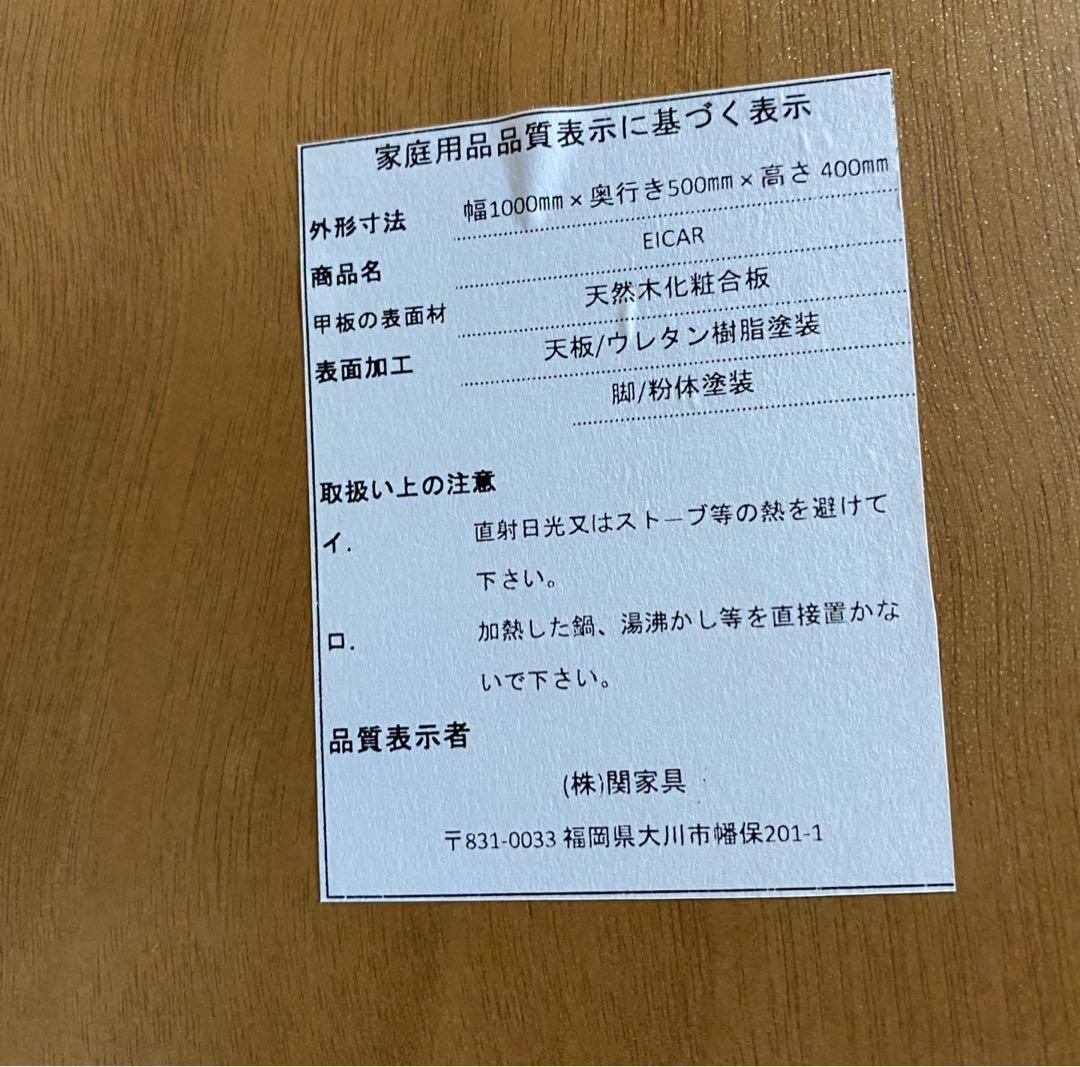 家庭用品品質表示に基づく表示
外形寸法 幅1000㎜×奥行き500㎜×高さ 400㎜
商品名 EICAR
甲板の表面材 天然木化粧合板
表面加工 天板/ウレタン樹脂塗装
脚/粉体塗装
取扱い上の注意
イ. 直射日光又はストーブ等の熱を避けて
下さい。
ロ. 加熱した鍋、湯沸かし等を直接置かな
いで下さい。
品質表示者
(株)関家具
〒831-0033 福岡県大川市幡保201-1